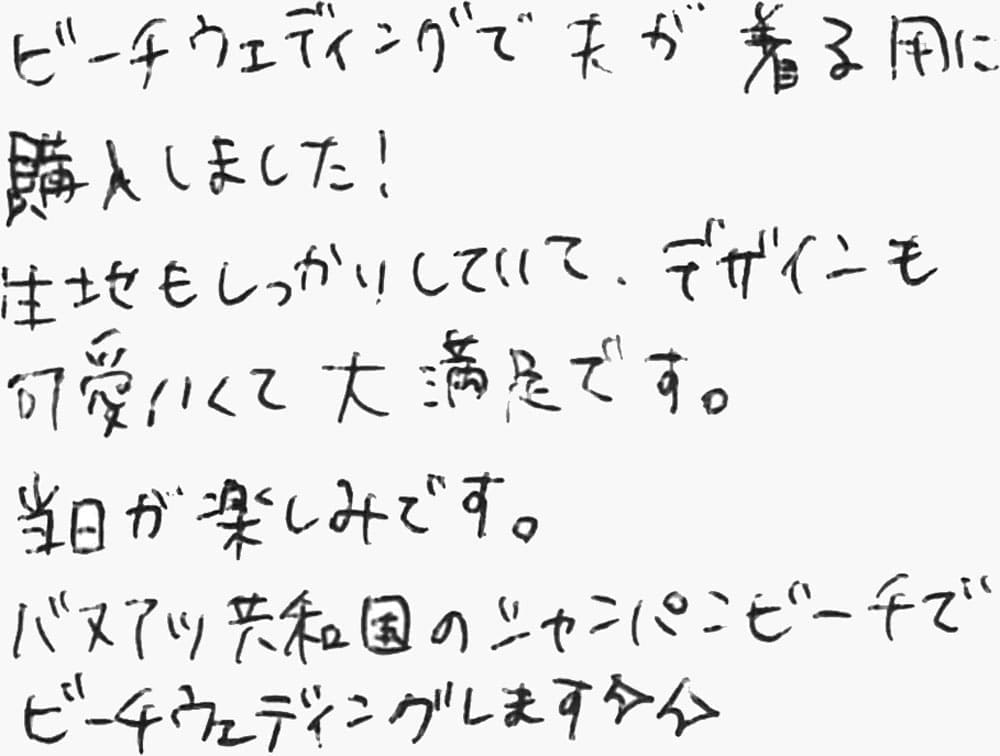 ビーチウェディングで夫が着る用に
購入しました!
生地もしっかりしていて、デザインも
可愛いくて大満足です。
当日が楽しみです。
バヌアツ共和国のシャンパンビーチで
ビーチウェディングします☆☆